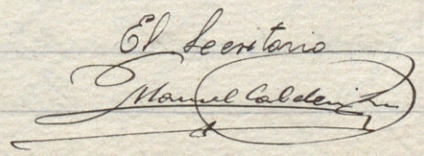 El Secretario
Manuel Calderón